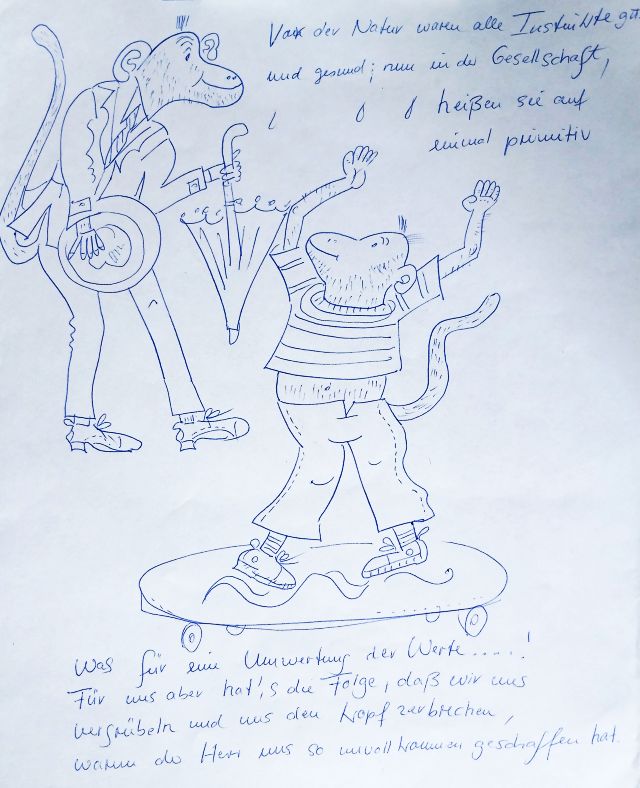 Vor der Natur waren alle Instinkte gut
und gesund; nun in der Gesellschaft,
heißen sie auf
einmal primitiv
Was für eine Umwertung der Werte.....!
Für uns aber hat's die Folge, daß wir uns
vergrübeln und uns den Kopf zerbrechen,
warum der Herr uns so unvollkommen geschaffen hat.